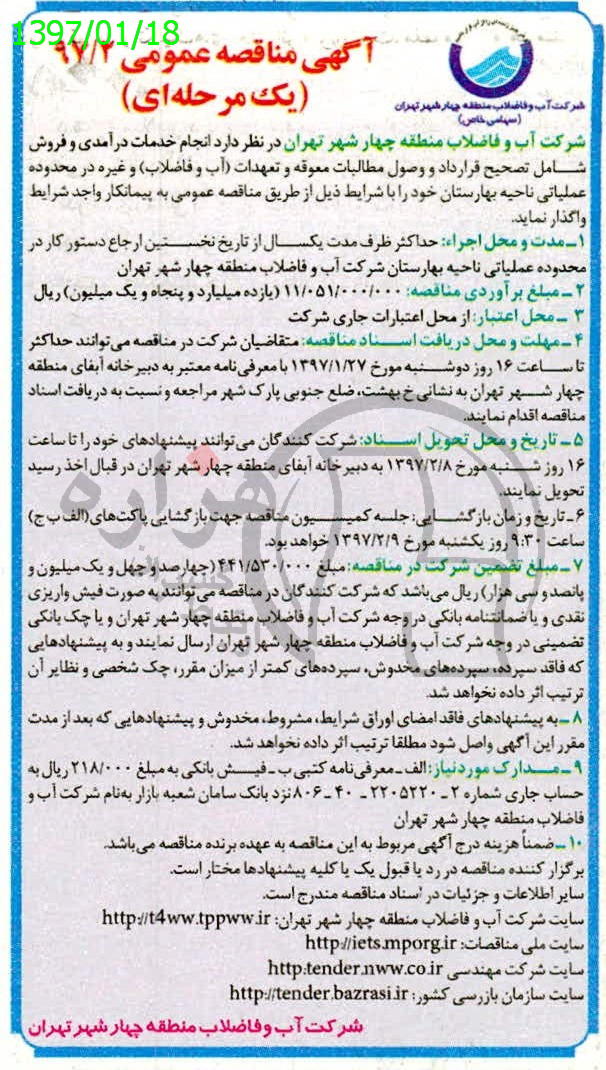 1397/01/18
آگهی مناقصه عمومی ۹۷/۲
(یک مرحله‌ای)
شرکت آب و فاضلاب منطقه چهار شهر تهران
(سهامی خاص)
شرکت آب و فاضلاب منطقه چهار شهر تهران در نظر دارد انجام خدمات درآمدی و فروش
شامل تصحیح قرارداد و وصول مطالبات معوقه و تعهدات (آب و فاضلاب) و غیره در محدوده
عملیاتی ناحیه بهارستان خود را با شرایط ذیل از طریق مناقصه عمومی به پیمانکار واجد شرایط
واگذار نماید.
۱ـ مدت و محل اجراء: حداکثر ظرف مدت یکسال از تاریخ نخستین ارجاع دستور کار در
محدوده عملیاتی ناحیه بهارستان شرکت آب و فاضلاب منطقه چهار شهر تهران
۲ ـ مبلغ برآوردی مناقصه: ۱۱/۰۵۱/۰۰۰/۰۰۰ (یازده میلیارد و پنجاه و یک میلیون) ریال
۳ ـ محل اعتبار: از محل اعتبارات جاری شرکت
۴ ـ مهلت و محل دریافت اسناد مناقصه: متقاضیان شرکت در مناقصه می‌توانند حداکثر
تا ساعت ۱۶ روز دوشنبه مورخ ۱۳۹۷/۱/۲۷ با معرفی‌نامه معتبر به دبیرخانه آبفای منطقه
چهار شهر تهران به نشانی خ بهشت، ضلع جنوبی پارک شهر مراجعه و نسبت به دریافت اسناد
مناقصه اقدام نمایند.
۵ ـ تاریخ و محل تحویل اسناد: شرکت کنندگان می‌توانند پیشنهادهای خود را تا ساعت
۱۶ روز شنبه مورخ ۱۳۹۷/۲/۸ به دبیرخانه آبفای منطقه چهار شهر تهران در قبال اخذ رسید
تحویل نمایند.
۶ ـ تاریخ و زمان بازگشایی: جلسه کمیسیون مناقصه جهت بازگشایی پاکت‌های (الف ب ج)
ساعت ۹:۳۰ روز یکشنبه مورخ ۱۳۹۷/۲/۹ خواهد بود.
۷ ـ مبلغ تضمین شرکت در مناقصه: مبلغ ۴۴۱/۵۳۰/۰۰۰ (چهارصد و چهل و یک میلیون و
پانصد و سی هزار) ریال می‌باشد که شرکت کنندگان در مناقصه می‌توانند به صورت فیش واریزی
نقدی و یا ضمانتنامه بانکی در وجه شرکت آب و فاضلاب منطقه چهار شهر تهران و یا چک بانکی
تضمینی در وجه شرکت آب و فاضلاب منطقه چهار شهر تهران ارسال نمایند و به پیشنهادهایی
که فاقد سپرده، سپرده‌های مخدوش، سپرده‌های کمتر از میزان مقرر، چک شخصی و نظایر آن
ترتیب اثر داده نخواهد شد.
۸ ـ به پیشنهادهای فاقد امضای اوراق شرایط، مشروط، مخدوش و پیشنهادهایی که بعد از مدت
مقرر این آگهی واصل شود مطلقا ترتیب اثر داده نخواهد شد.
۹ ـ مدارک مورد نیاز: الف ـ معرفی‌نامه کتبی ب ـ فیش بانکی به مبلغ ۲۱۸/۰۰۰ ریال به
حساب جاری شماره ۲ ـ ۲۲۰۵۲۲۰ ـ ۴۰ ـ ۸۰۶ نزد بانک سامان شعبه بازار به‌نام شرکت آب و
فاضلاب منطقه چهار شهر تهران
۱۰ ـ ضمناً هزینه درج آگهی مربوط به این مناقصه به عهده برنده مناقصه می‌باشد.
برگزار کننده مناقصه در رد یا قبول یک یا کلیه پیشنهادها مختار است.
سایر اطلاعات و جزئیات در اسناد مناقصه مندرج است.
سایت شرکت آب و فاضلاب منطقه چهار شهر تهران: http://t4ww.tppww.ir
سایت ملی مناقصات: http://iets.mporg.ir
سایت شرکت مهندسی http:tender.nww.co.ir
سایت سازمان بازرسی کشور: http://tender.bazrasi.ir
شرکت آب و فاضلاب منطقه چهار شهر تهران
هزاره